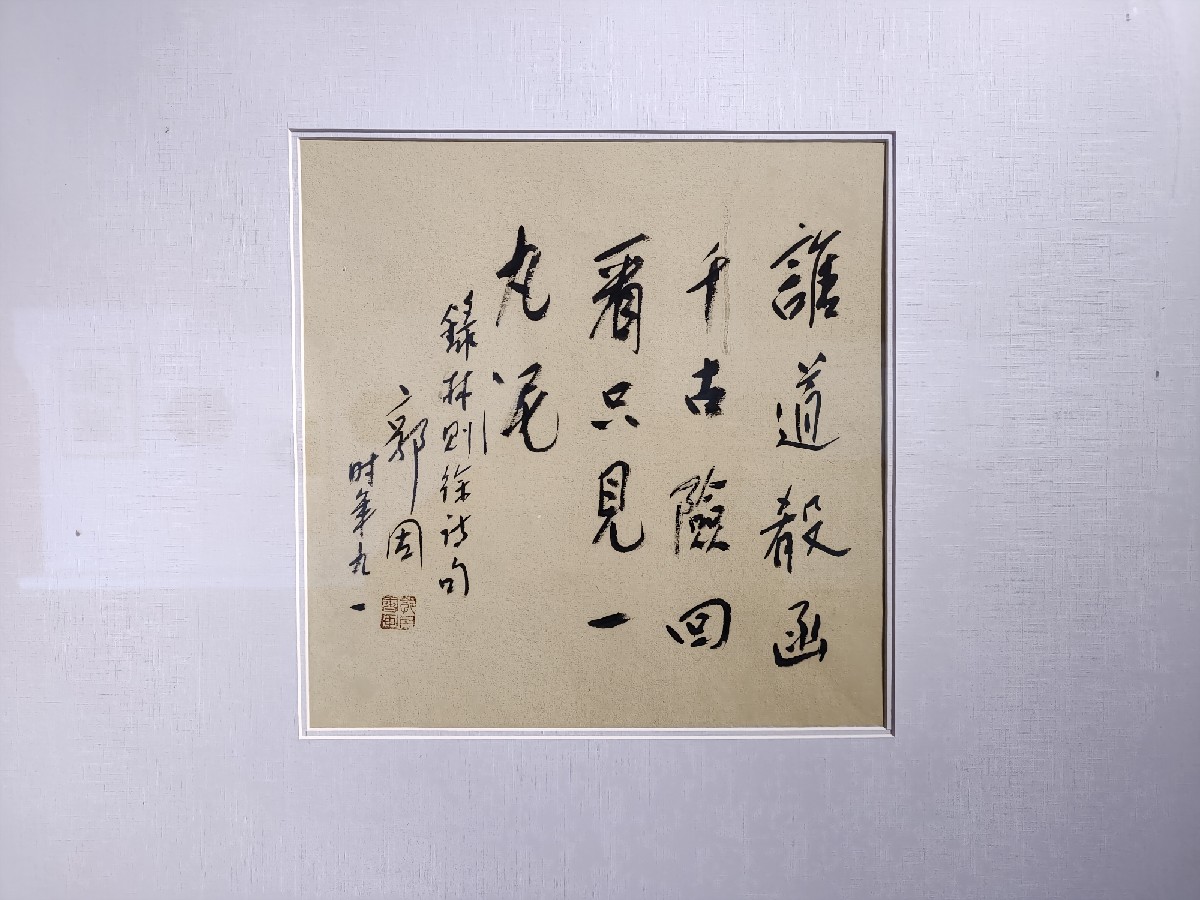 誰道殽函
千古險回
看只見一
丸泥
錄林则徐诗句
郭周
时年九一